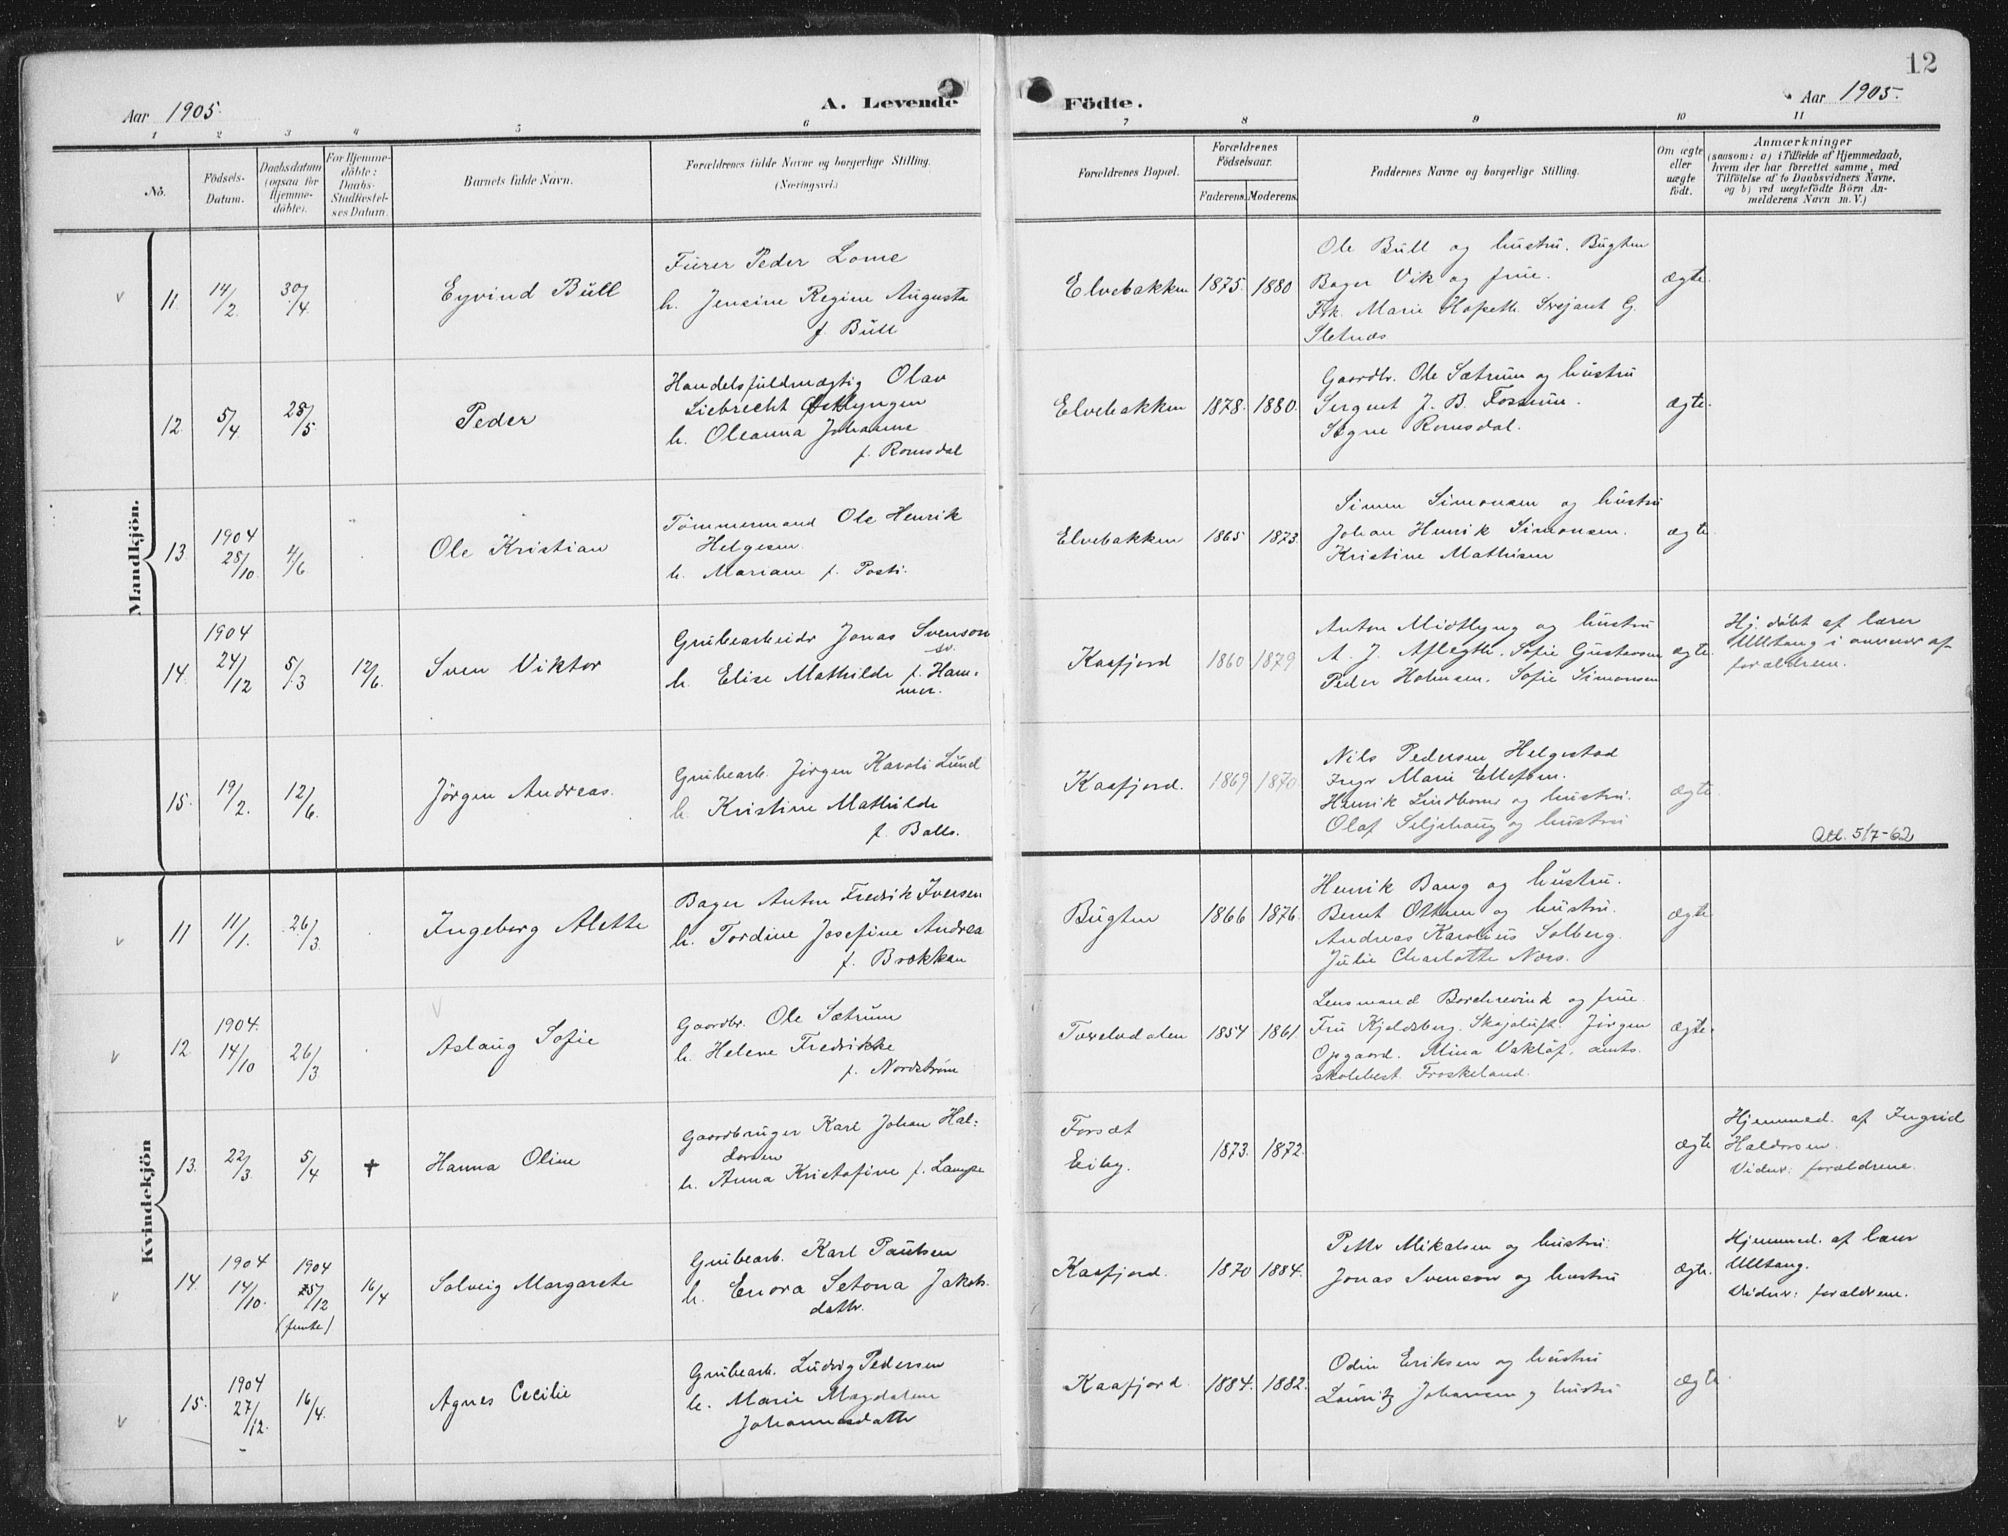 12
Aar 1905.
A. Levende Födte.
Aar 1905.
1 2 3 4 5 6 7 8 9 10 11
No.
Födsels-
Datum.
Daabsdatum
(ogsaa for
Hjemme-
døbte).
For Hjemme-
döbte:
Daabs-
Stadfæstel-
ses Datum.
Barnets fulde Navn.
Forældrenes fulde Navne og borgerlige Stilling.
(Næringsvei.)
Forældrenes Bopæl.
Forældrenes
Födselsaar.
Faderens. Moderens.
Faddernes Navne og borgerlige Stilling.
Om ægte
eller
uægte
födt.
Anmærkninger
(saasom: a) i Tilfælde af Hjemmedaab,
hvem der har forrettet samme, med
Tilföielse af to Daabsvidners Navne,
og b) ved uægtefödte Börn An-
melderens Navn m. V.)
Mandkjön.
11. 14/2 30/4 Eyvind Bull
Furer Peder Lome
h. Jensine Regine Augusta
f. Bull
Elvebakken 1875. 1880
Ole Bull og hustru. Bugten
Bager Vik og frue.
Frk. Marie Sersjant G.
Sletnæs
ægte.
12. 5/4 28/5 Peder
Handelsfuldmægtig Olav
Liebrecht
h. Oleanna Johanne
f. Romsdal
Elvebakken 1878. 1880.
Gaardbr. Ole Sætrum og hustru
Sergent J. B. Fossum.
Signe Romsdal.
ægte.
13. 1904
28/10 4/6 Ole Kristian
Tømmermand Ole Henrik
Helgesen
h. Mariane f. Posti.
Elvebakken 1865 1873.
Simen Simonsen og hustru
Johan Henrik Simonsen.
Kristine Mathisen
ægte.
14. 1904
24/12 5/3 12/6. Sven Viktor
Grubearbeidr Jonas Svenson
sv.
h. Elise Mathilde f. Ham-
mer.
Kaafjord 1860 1879
Anton Midtlyng og hustru
A. J. Sofie Gustavsen
Peder Holmsen. Sofie Simonsen
ægte.
Hj. døbt af lærer
Ulltang i overvær af
forældrene.
15. 19/2. 12/6. Jörgen Andreas.
Grubearb. Jörgen Karoli Lund
h. Kristine Mathilde
f. Ballo.
Kaafjord. 1869 1870
Nils Pedersen Helgestad
Marie Ellefsen.
Henrik Lindboe og hustru.
Olaf Seljehaug og hustru
ægte.
Att. 5/7-62
Kvindekjön
11 11/1. 26/3 Ingeborg Alette
Bager Anton Fredrik Iversen
h. Tordine Josefine Andrea
f. Brækkan
Bugten 1866 1876.
Henrik Bang og hustru.
Bernt Olsen og hustru.
Andreas Karolius Solberg.
Julie Charlotte Næss.
ægte
12. 1904.
14/10 26/3 Aslaug Sofie
Gaardbr. Ole Sætrum
h. Helene Fredrikke
f. Nordstrøm
Tverelvdalen 1854 1861.
Lensmand Borchrevink og frue.
Fru Kjeldsberg. Jörgen
Opgaard. Mina amts.
skolebest. Froskeland.
ægte.
13. 22/3 5/4 + Hanna Oline
Gaardbruger Karl Johan Hal-
dorsen
h. Anna Kristofine f. Lampe
Forsæt
Eiby. 1873. 1872.
ægte
Hjemmed. af Ingrid
Haldorsen.
Vidner: forældrene.
14. 1904
14/10. 1904
25/12
(femte)
16/4 Solveig Margarete
Grubearb. Karl Paulsen
h. Enora Setona Jakobs-
dattr.
Kaafjord. 1870 1884.
Petter Mikalsen og hustru.
Jonas Svenson og hustru
ægte.
Hjemmed. af lærer
Ulltang.
Vidner: forældrene.
15. 1904
27/12. 16/4. Agnes Cecilie
Grubearb. Ludvig Pedersen
h. Marie Magdalene
Johannesdattr
Kaafjord. 1884. 1882.
Odin Eriksen og hustru
Lauritz Johansen og hustru
ægte